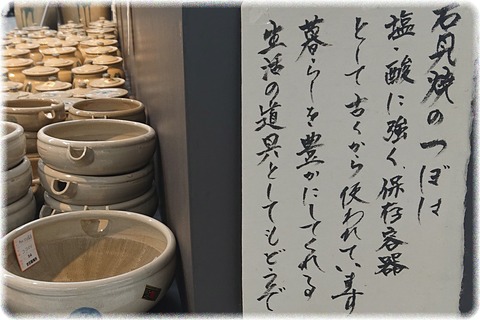 石見焼のつぼは
塩・酸に強く、保存容器
として古くから使われています
暮らしを豊かにしてくれる
生活の道具としてもどうぞ